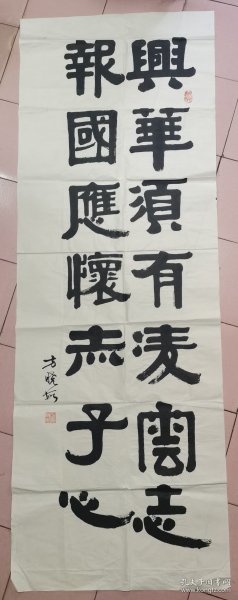 興華須有凌雲志
報國應懷赤子心